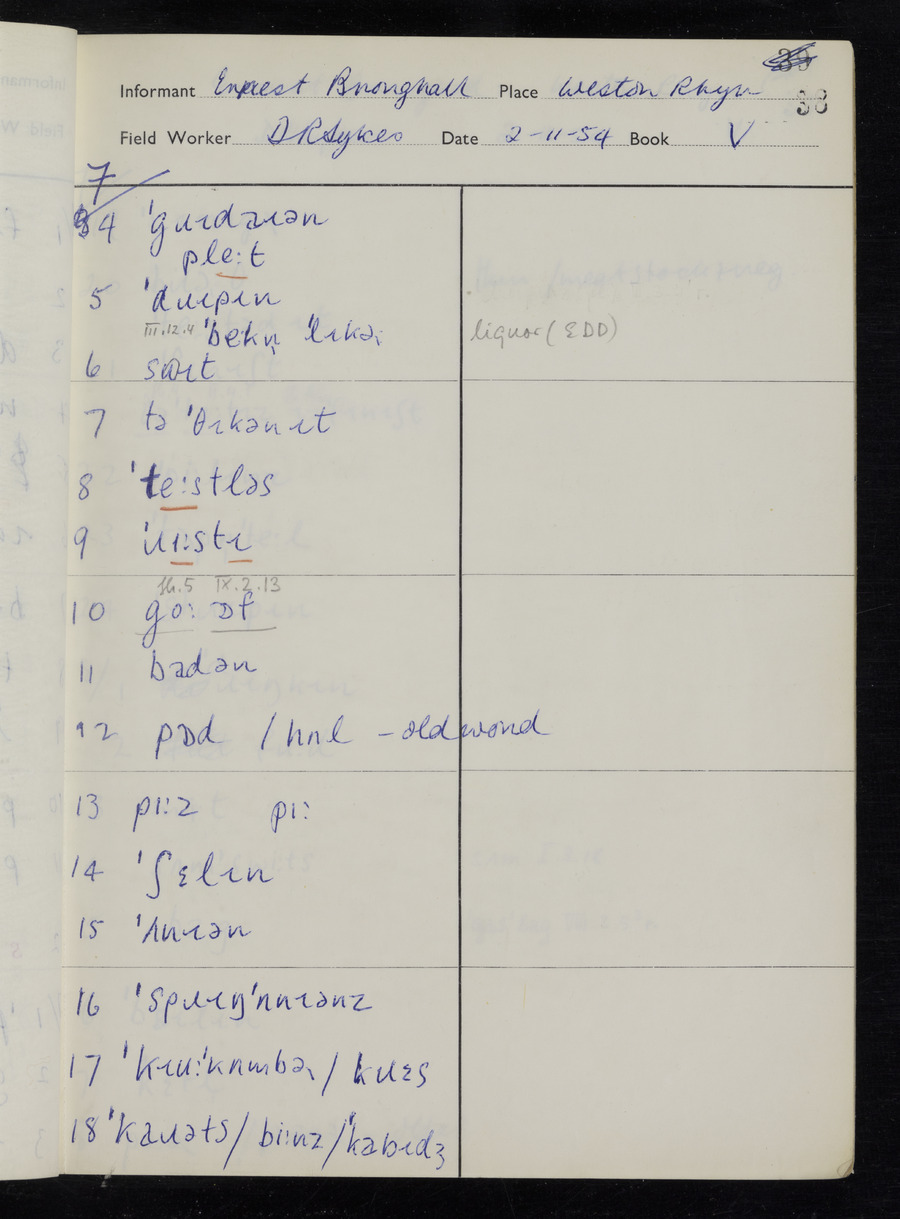 38
Informant Ernest Broughall Place Weston Rhyn
Field Worker D R Sykes Date 2-11-54 Book V
7
4 ˈgɹɪdaɪən
ple:t
5 ˈdɹɪpɪn
III.12.4 ˈbekn̩ ˈlɪkəɹ liquor (EDD)
6 swɪt
7 tə ˈθɪkən ɪt
8 ˈte:stləs
9 ˈɹɪ:stɪ
sh.5 IX.2.13
10 go: ɒf
11 badən
12 pɒd / hʌl - old word
13 pɪ:z pɪ:
14 ˈʃɛlɪn
15 ˈʌnɪən
16 ˈspɹɪŋˈʌnɪənz
17 ˈkɪu:ˈkʌmbəɹ / kɹɛs
18 ˈkaɹəts / bi:nz / ˈkabɪdʒ